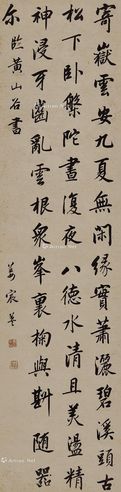 寄嶽雲安九夏無閑緣實蕭灑碧溪頭古
松下臥盤陀晝復夜八德水清且美盪精
神浸牙齒亂雲根衆峯裏掬與斟随器
尔 臨黄山谷書